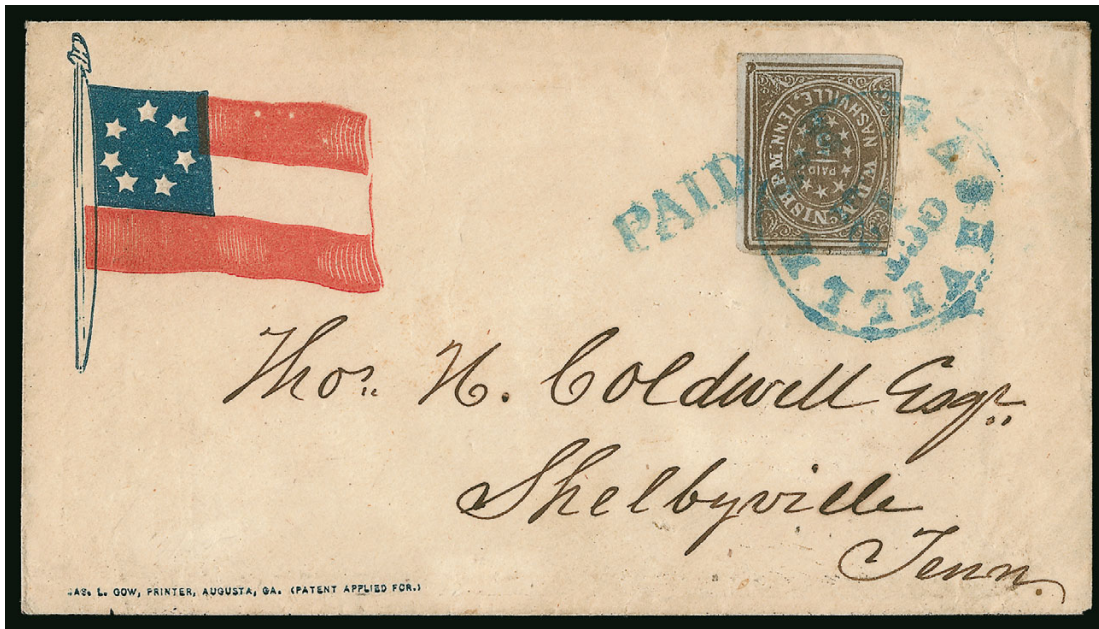 PAID
NASHVILLE
OCT
W.D. McNISH P.M. NASHVILLE, TENN.
PAID
5
Thos. H. Coldwell Esqr.
Shelbyville
Tenn.
JAS. L. GOW, PRINTER, AUGUSTA, GA. (PATENT APPLIED FOR.)